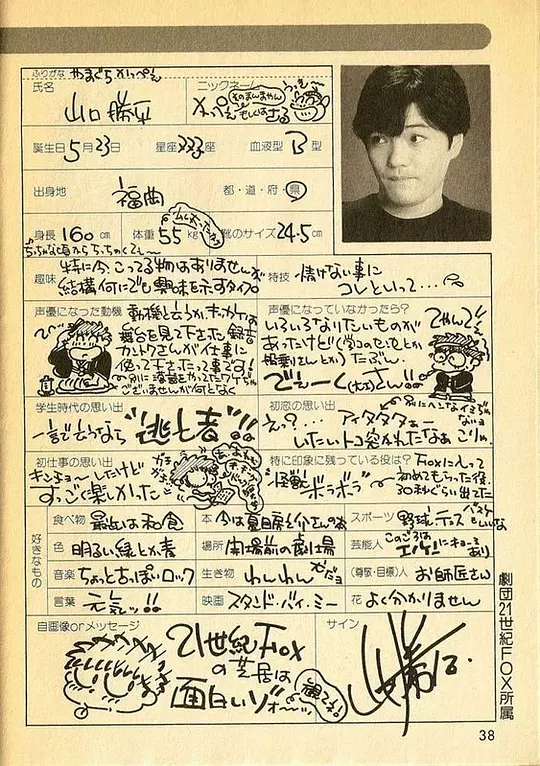 ふりがな やまぐち かっぺい
氏名 山口勝平
ニックネーム かっぺい
誕生日 5月23日 星座 ふたご座 血液型 B型
出身地 福岡 都・道・府・県
身長 160cm 体重 55kg 靴のサイズ 24.5cm
ちっちゃな頃からちっちゃくて
趣味 特に今、こってる物はありませんが
結構何にでも興味を示すタイプ
特技 情けない事に
コレといって…
声優になった動機 動機と云うか、きっかけは
舞台を見て下さった録音
カントクさんが仕事に
使って下さったって事です!
声優になっていなかったら?
いろいろなりたいものが
あったけど
たぶん.
でぇーく(大工)さん!!
学生時代の思い出
一言で云うなら "逃亡者"!!
初恋の思い出
えっ?… アイタタタぁー
いたいトコ突かれたなぁ こりゃ
初仕事の思い出
キンチョーしたけど
すっごく楽しかった
特に印象に残っている役は? FOXに入って
初めてもらった役.
怪獣 ボラボラ 30秒ぐらい出てた
好きなもの
食べ物 最近は和食
本 今は夏目房之介さんの本
スポーツ 野球 テニス
色 明るい緑とか、青
場所 開場前の劇場
芸能人 このごろは エノケンに
音楽 ちょっと古っぽいロック
生き物 わんわん だョ
(尊敬・目標)人 お師匠さん
言葉 元気ッ!!
映画 スタンド・バイ・ミー
花 よく分かりません
自画像orメッセージ
21世紀FOX
の芝居は
面白いゾォーッ
観てネ!
サイン
劇団21世紀FOX所属
38